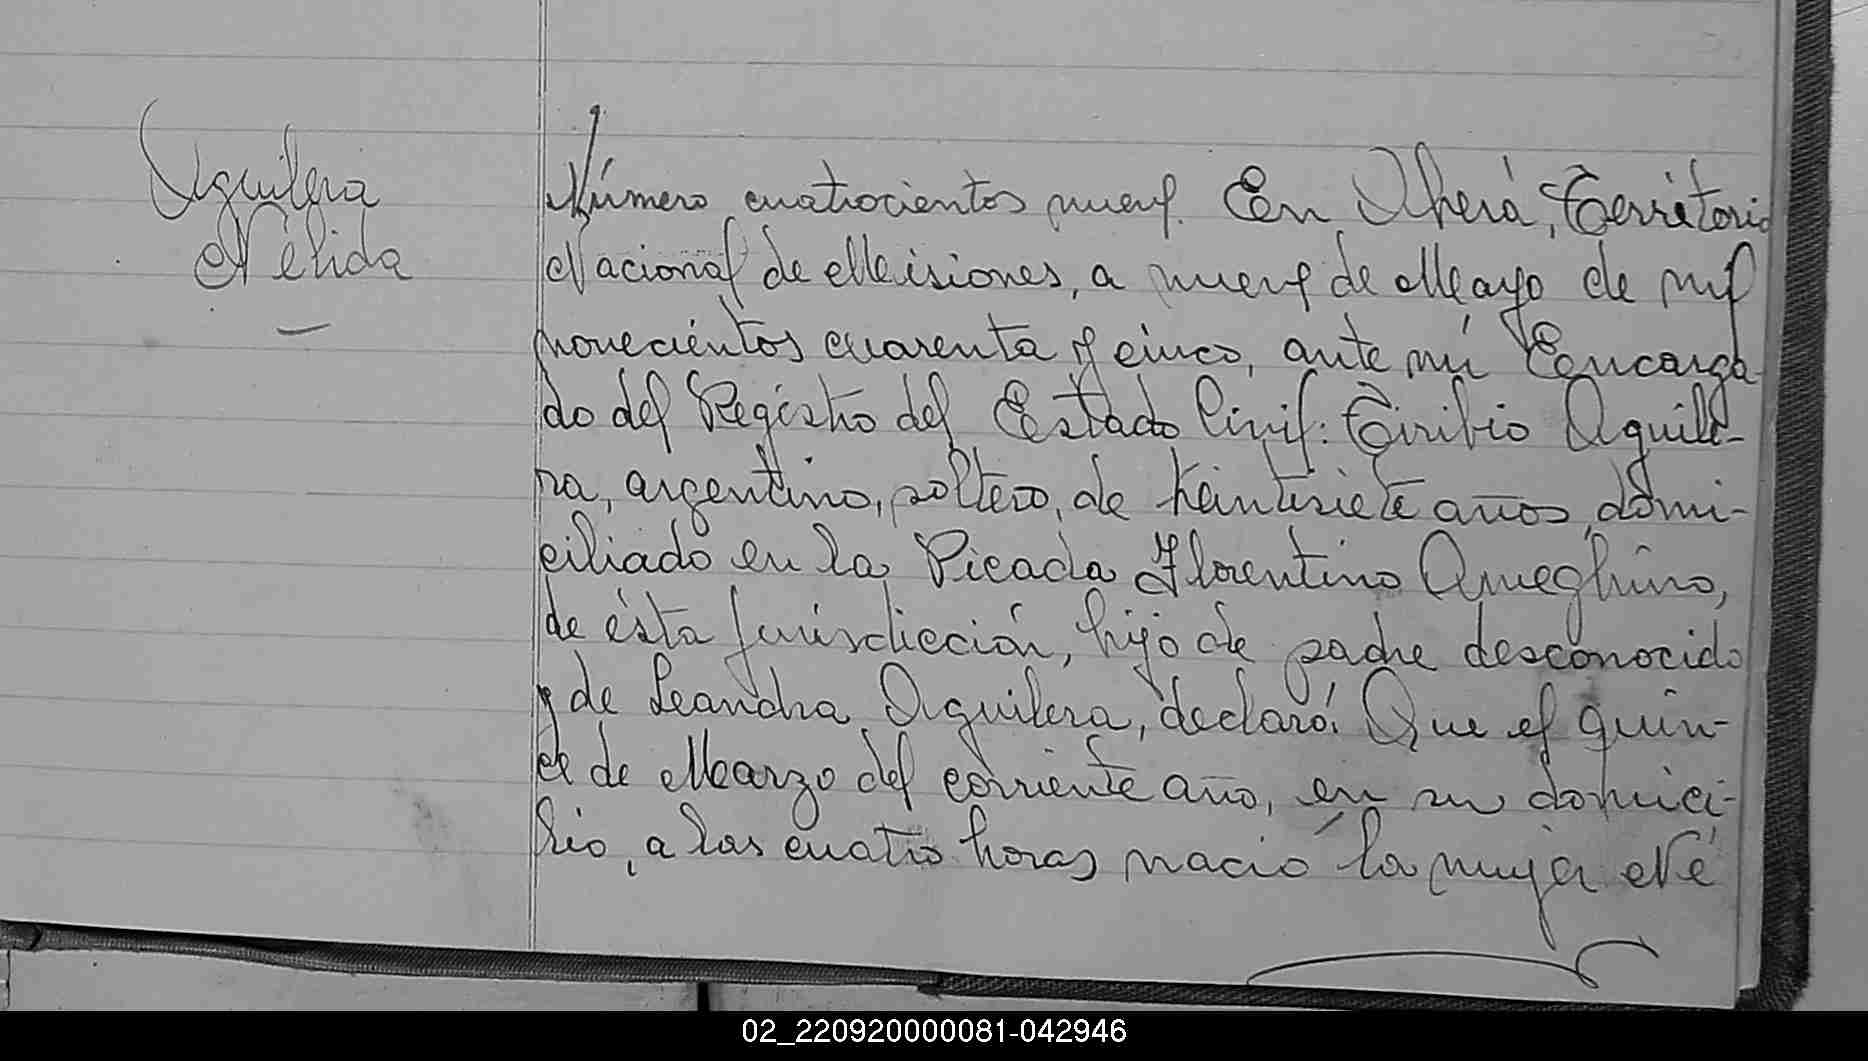 Aguilera
Nélida
Número cuatrocientos nueve. En Oberá, Territorio
Nacional de Misiones, a nueve de Mayo de mil
novecientos cuarenta y cinco, ante mí Encarga
do del Registro del Estado Civil: Tiribio Aguile-
ra, argentino, soltero, de veintisiete años, domi-
ciliado en la Picada Florentino Ameghino,
de ésta jurisdicción, hijo de padre desconocido
y de Leandra Aguilera, declaró: Que el quin-
ce de Marzo del corriente año, en su domici-
lio, a las cuatro horas nació la mujer Né
02_220920000081-042946